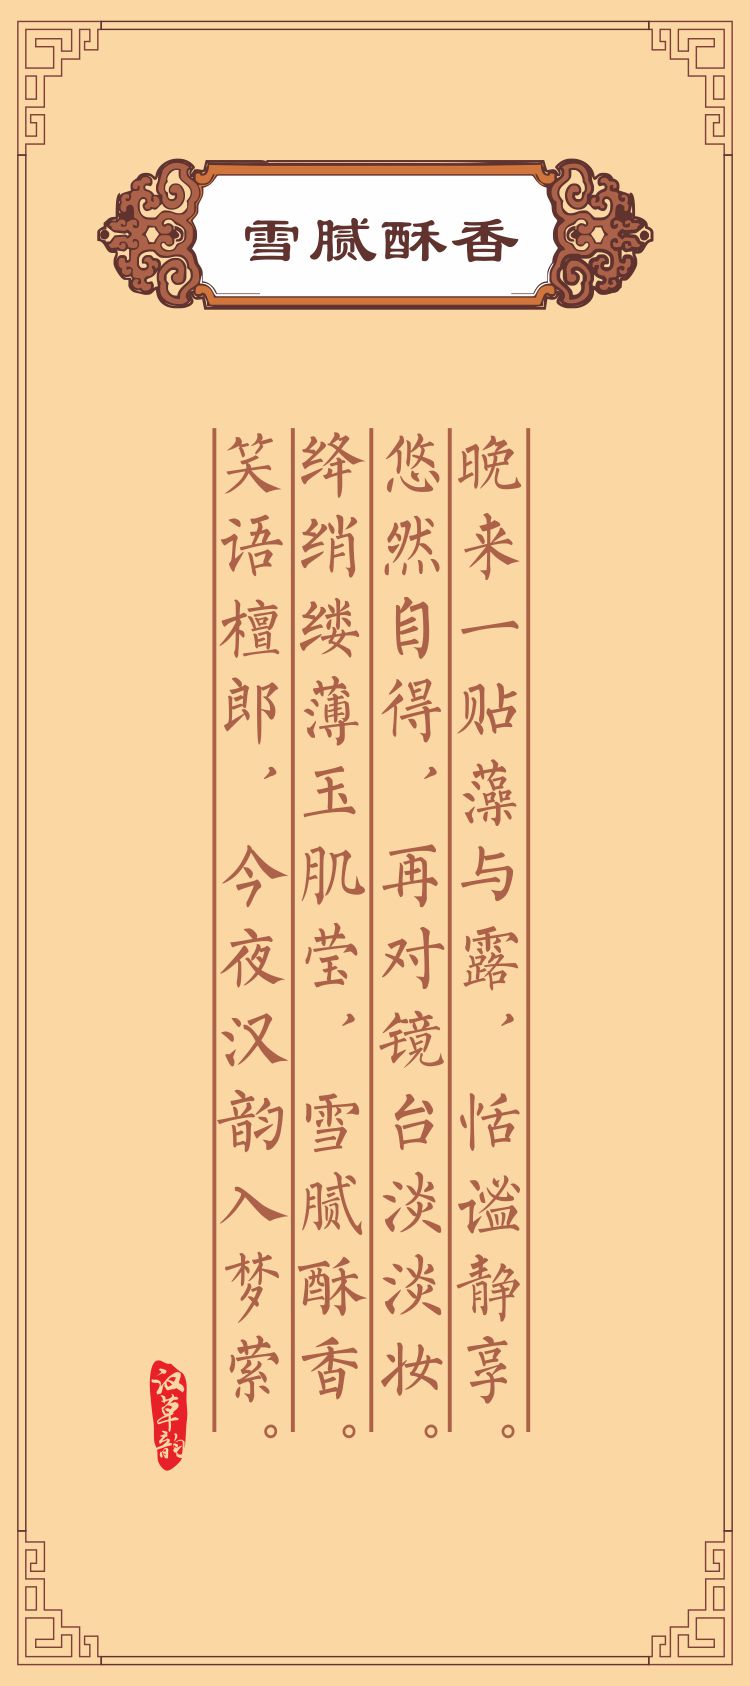 雪腻酥香
晚来一贴藻与露，恬谧静享。
悠然自得，再对镜台淡淡妆。
绛绡缕薄玉肌莹，雪腻酥香。
笑语檀郎，今夜汉韵入梦萦。
汉草韵